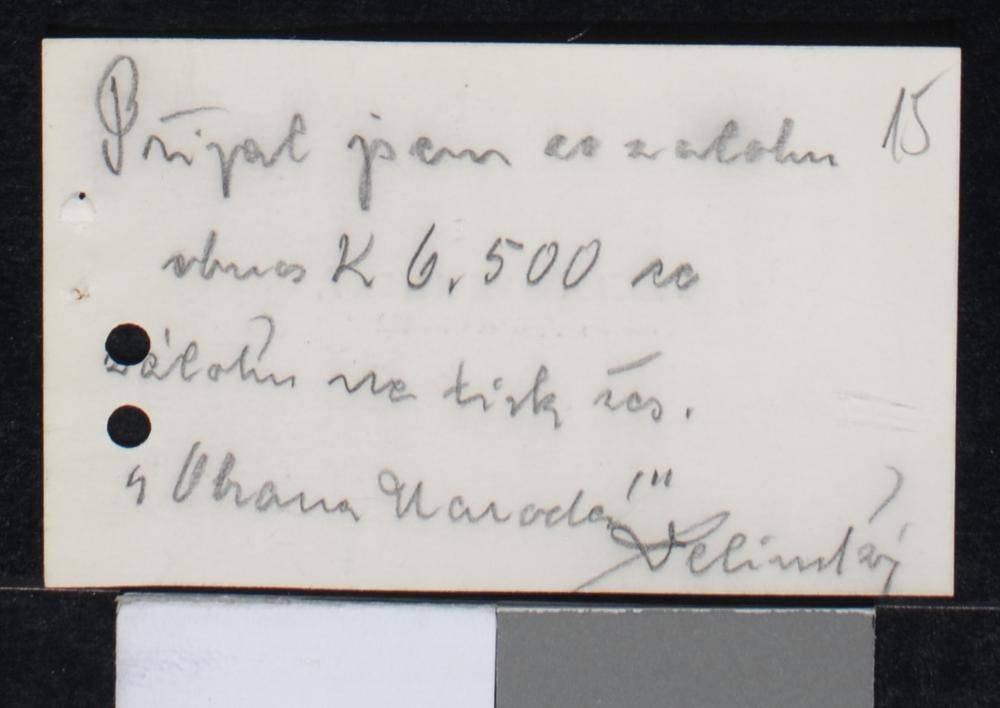 Přijal jsem co zalohu 15
obnos K 6.500 co
zálohu na tisk čas.
„Obrana Naroda"